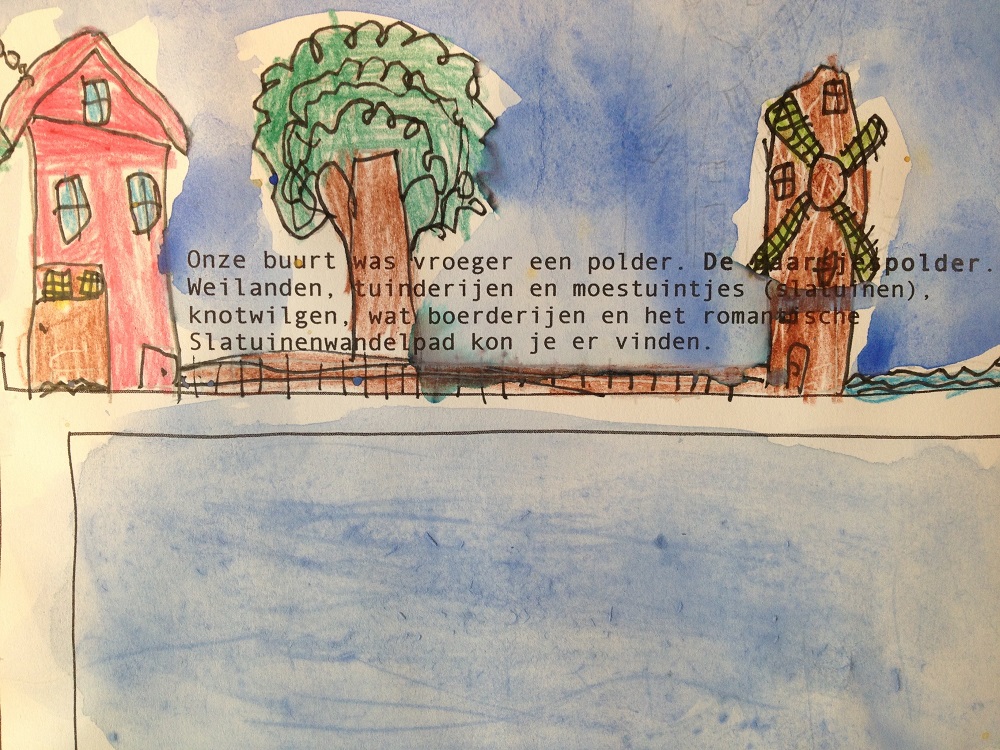 Onze buurt was vroeger een polder. De Baarsjespolder.
Weilanden, tuinderijen en moestuintjes (slatuinen),
knotwilgen, wat boerderijen en het romantische
Slatuinenwandelpad kon je er vinden.